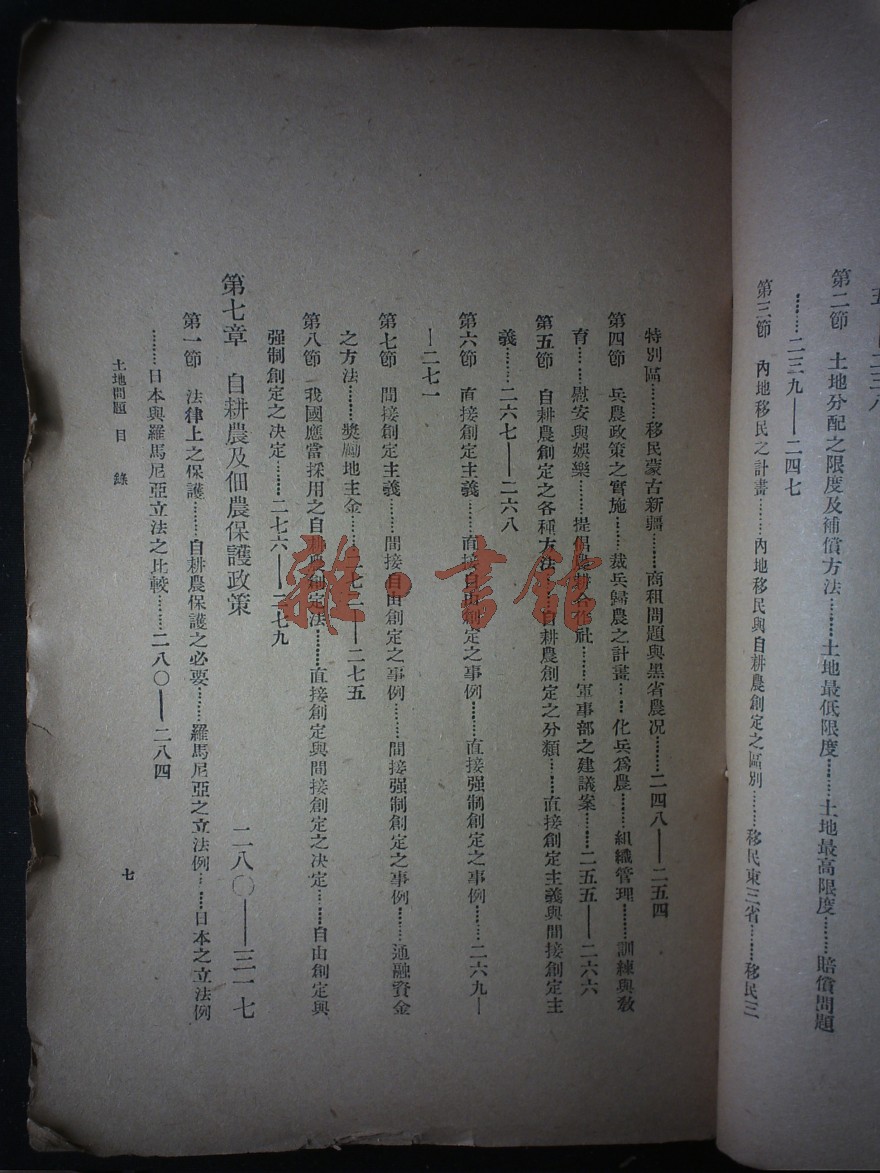 第二節　土地分配之限度及補償方法………土地最低限度………土地最高限度………賠償問題
………二三九——二四七
第三節　內地移民之計畫………內地移民與自耕農創定之區別………移民東三省………移民三
特別區………移民蒙古新疆………商租問題與黑省農况………二四八——二五四
第四節　兵農政策之實施………裁兵歸農之計畫………化兵爲農………組織管理………訓練與敎
育………慰安與娛樂………提倡農耕合作社………軍事部之建議案………二五五——二六六
第五節　自耕農創定之各種方法………自耕農創定之分類………直接創定主義與間接創定主
義………二六七——二六八
第六節　直接創定主義………直接自由創定之事例………直接强制創定之事例………二六九—
—二七一
第七節　間接創定主義………間接自由創定之事例………間接强制創定之事例………通融資金
之方法………奬勵地主金………二七二——二七五
第八節　我國應當採用之自耕農創定法………直接創定與間接創定之决定………自由創定與
强制創定之决定………二七六——二七九
第七章　自耕農及佃農保護政策　二八〇——三一七
第一節　法律上之保護………自耕農保護之必要………羅馬尼亞之立法例………日本之立法例
………日本與羅馬尼亞立法之比較………二八〇——二八四
土地問題　目錄
七
雜·書館